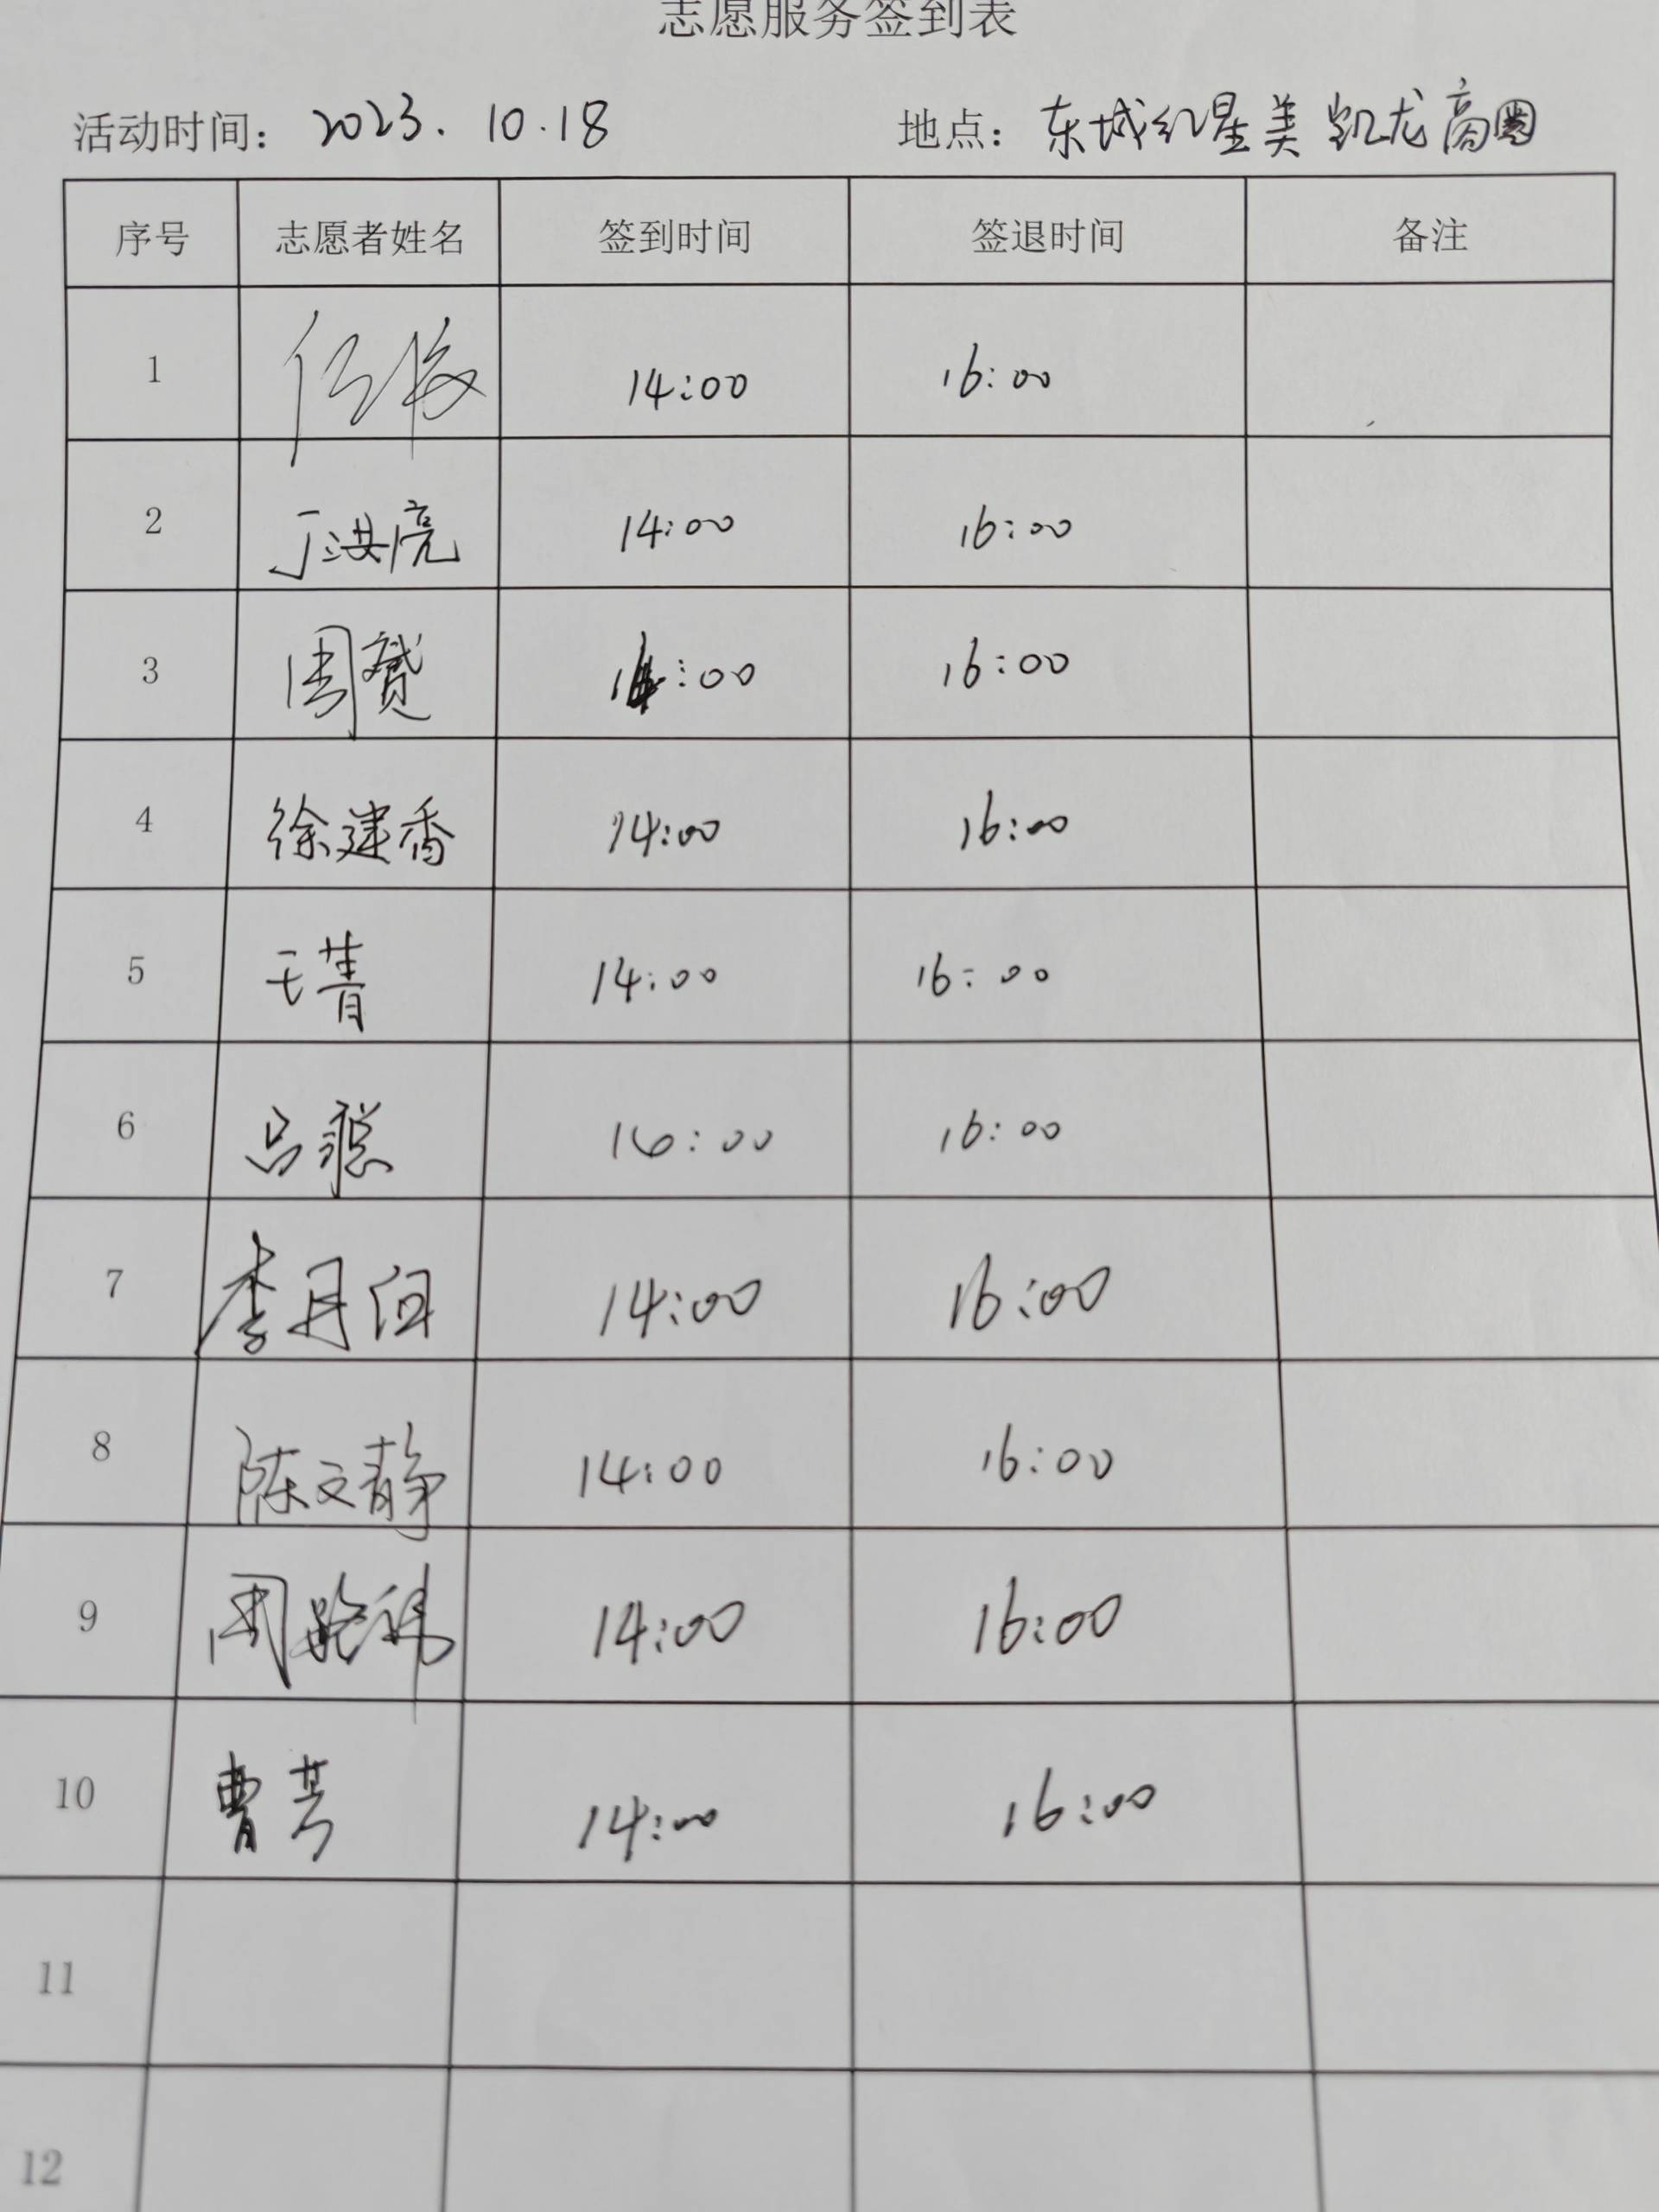 志愿服务签到表
活动时间: 2023.10.18 地点: 东城红星美凯龙商圈
序号 志愿者姓名 签到时间 签退时间 备注
1 14:00 16:00
2 丁洪亮 14:00 16:00
3 周赟 14:00 16:00
4 徐建香 14:00 16:00
5 王菁 14:00 16:00
6 吕聪 16:00 16:00
7 李月 14:00 16:00
8 陈文静 14:00 16:00
9 周 14:00 16:00
10 曹芳 14:00 16:00
11
12